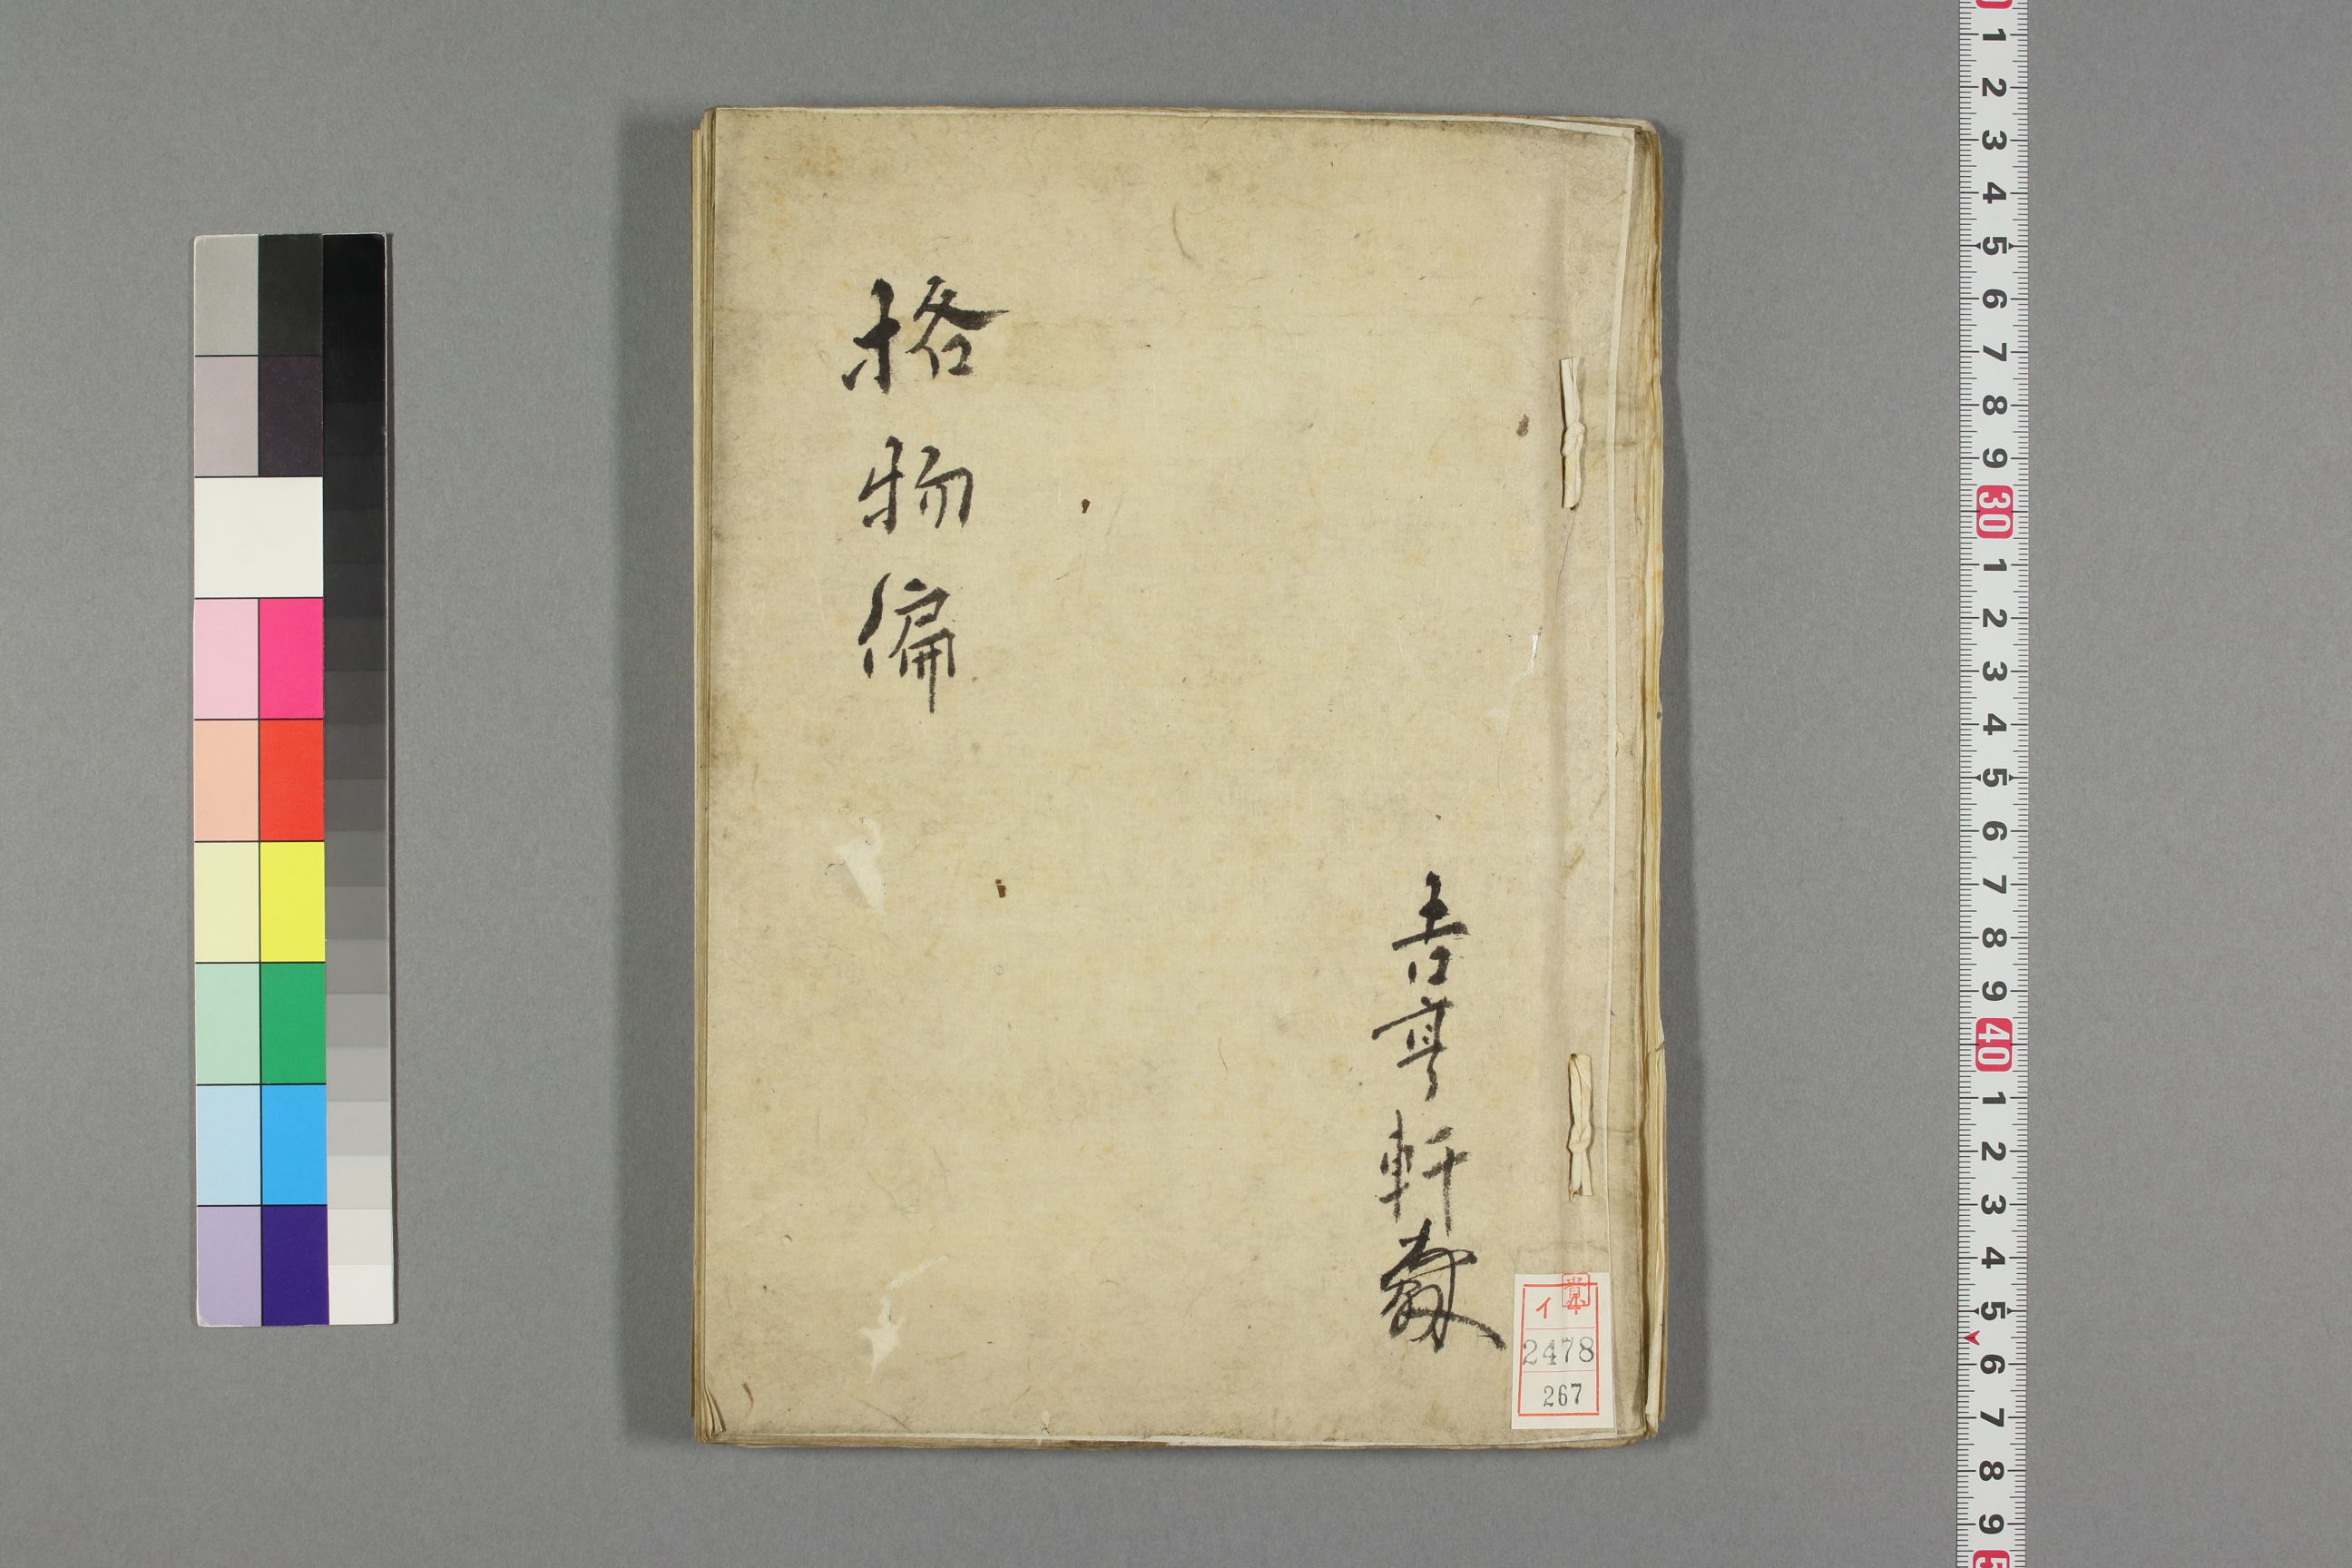 吉雩軒蔵
格物偏
イ
2478
267
1
2
3
4
5
6
7
8
9
30
1
2
3
4
5
6
7
8
9
40
1
2
3
4
5
6
7
8
9